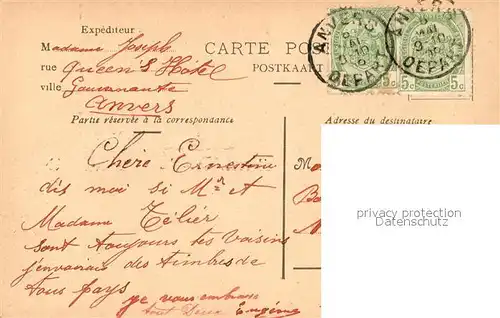 Expéditeur:
Madame Joseph
rue Queen's Hôtel
ville Gouvernante
Anvers
CARTE POS
POSTKAART
ANVERS
DEPART
5c
5c
Partie réservée à la correspondance
Adresse du destinataire
Chère Ernestine
dis moi si Mr et
Madame Télier
sont toujours tes voisins
j'envoirai des timbres de
tous pays
je vous embrasse
tout Deux Eugénie
protection privacy
Datenschutz